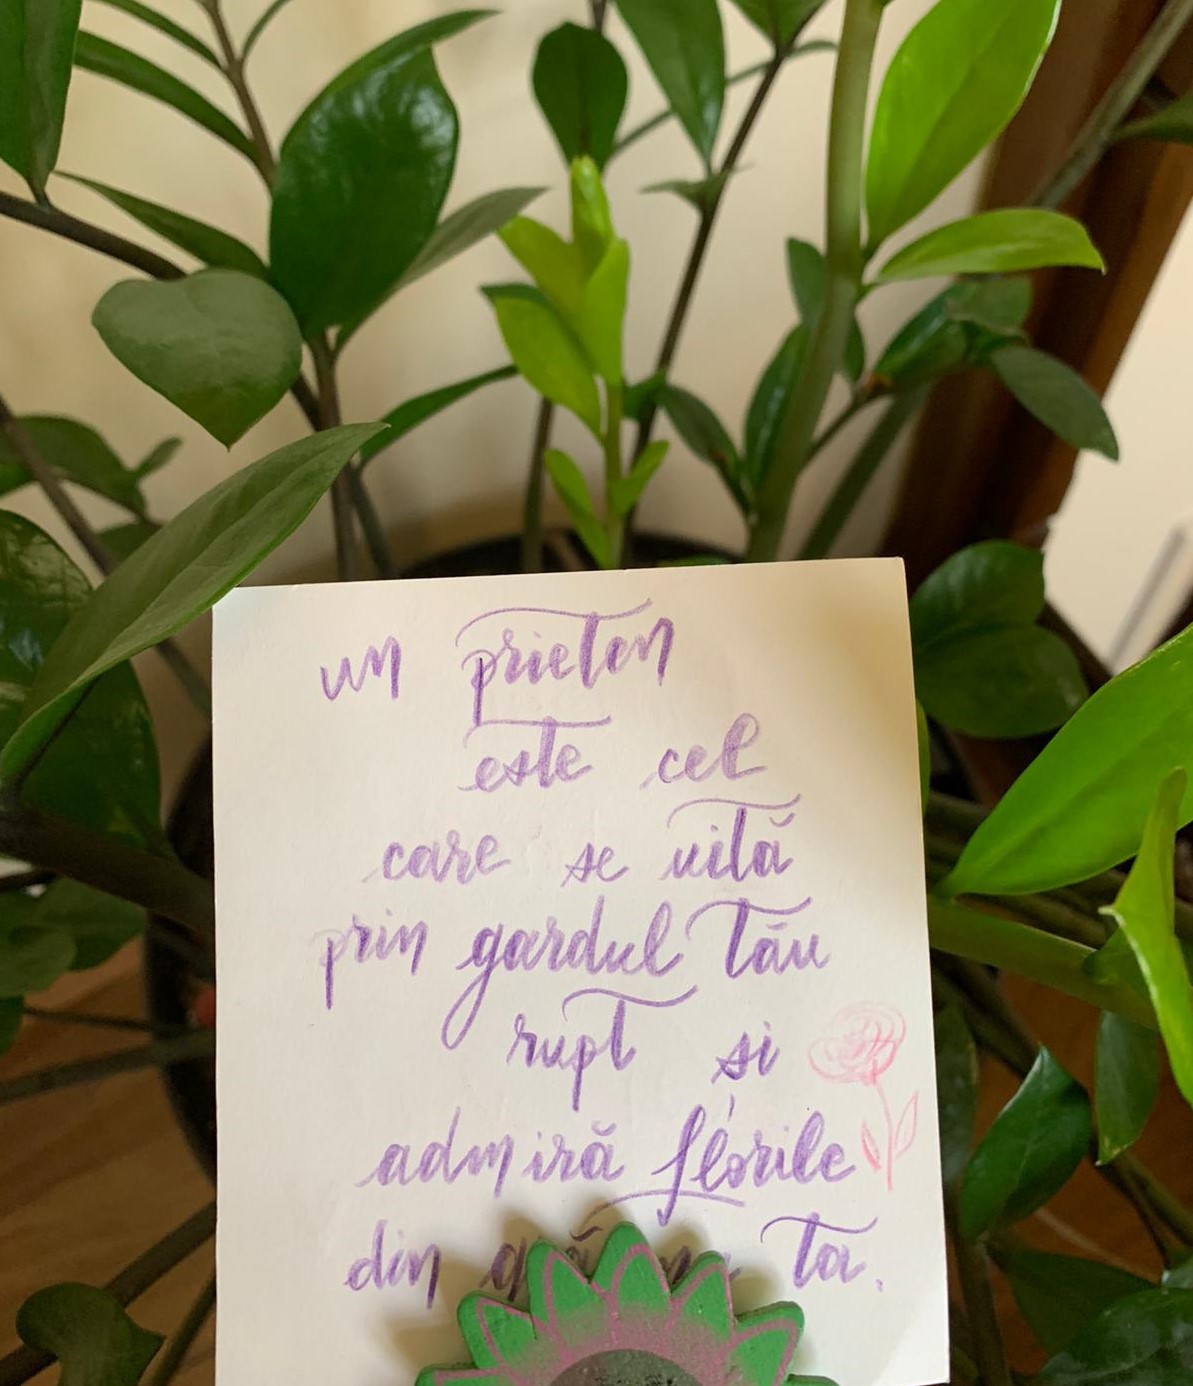 un prieten
este cel
care se uită
prin gardul tău
rupt și
admiră florile
din ta.